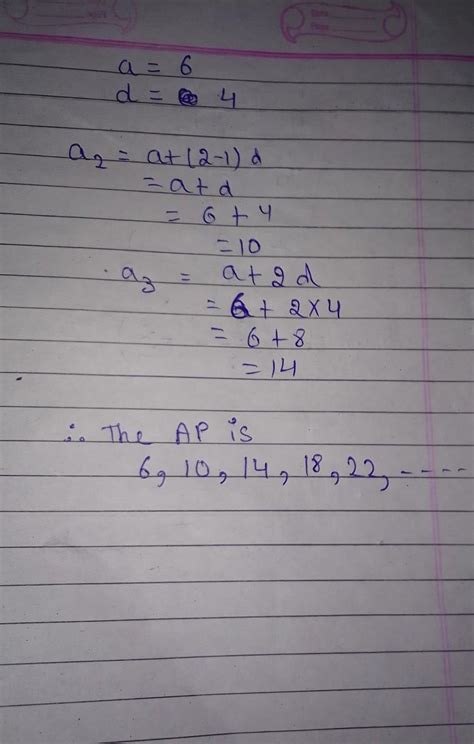 a = 6
d = 4
a₂ = a+(2-1) d
= a+d
= 6 + 4
= 10
a₃ = a+2d
= 6+ 2×4
= 6+8
= 14
∴ The AP is
6, 10, 14, 18, 22, ----